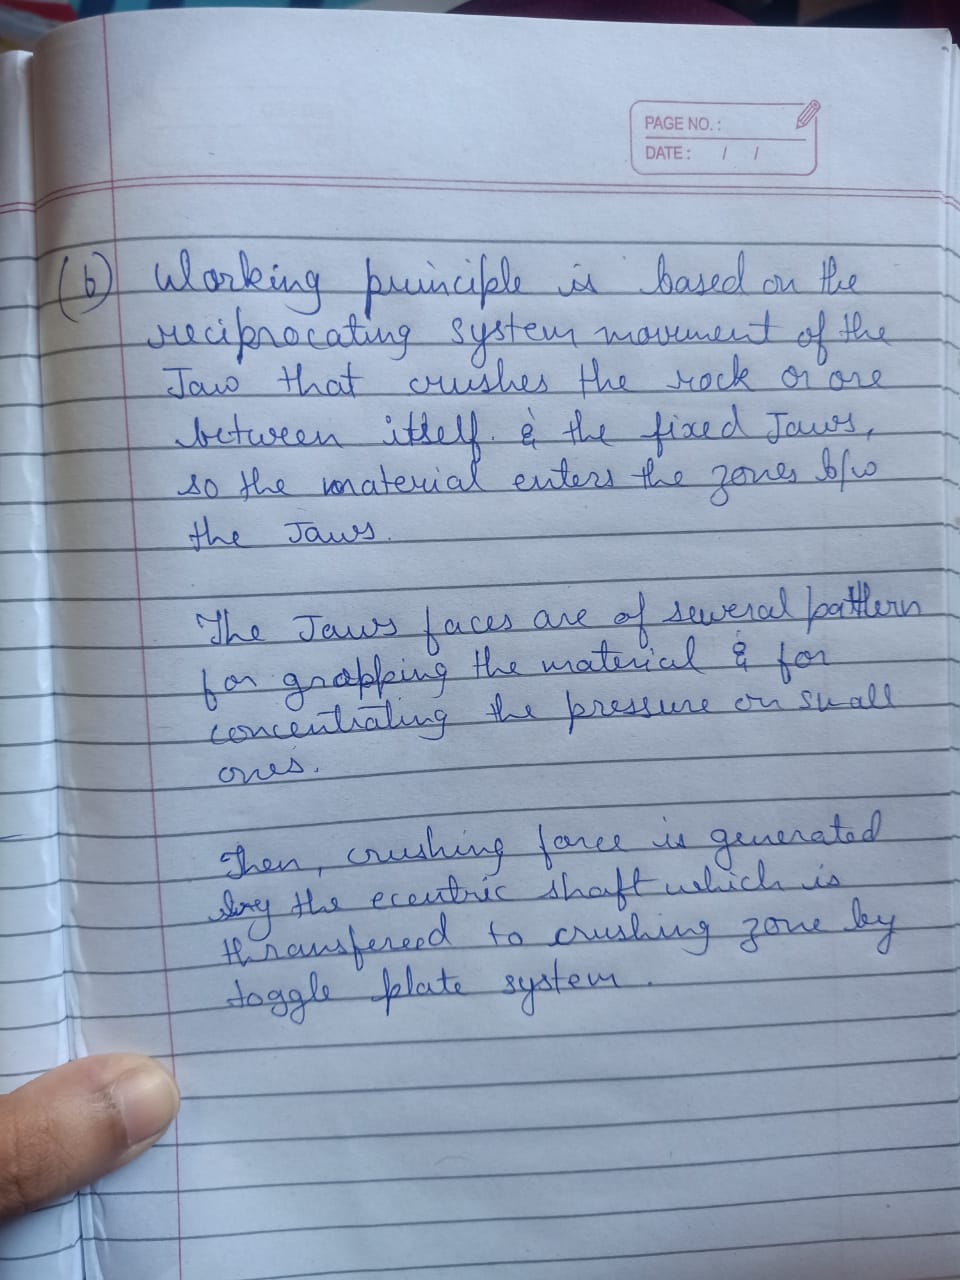 PAGE NO. :
DATE : / /
(b) Working principle is based on the
reciprocating system movement of the
Jaw that crushes the rock or ore
between itself. & the fixed Jaws,
so the material enters the zones b/w
the Jaws.
The Jaws faces are of several pattern
for grapping the material & for
concentrating the pressure on small
ones.
Then, crushing force is generated
by the ecentric shaft which is
thransfereed to crushing zone by
toggle plate system.